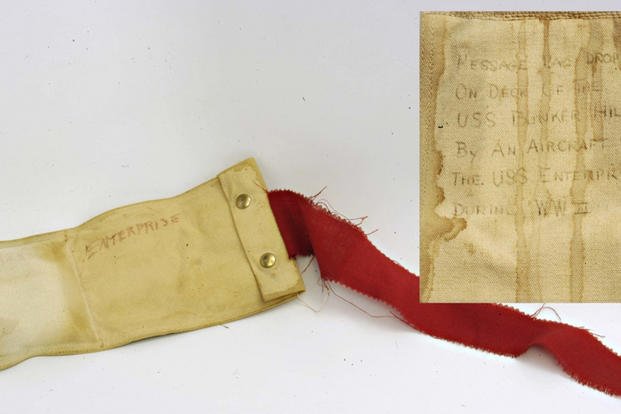 ENTERPRISE
MESSAGE BAG DROP
ON DECK OF THE
USS BUNKER HIL
BY AN AIRCRAFT
THE USS ENTERPR
DURING WW II